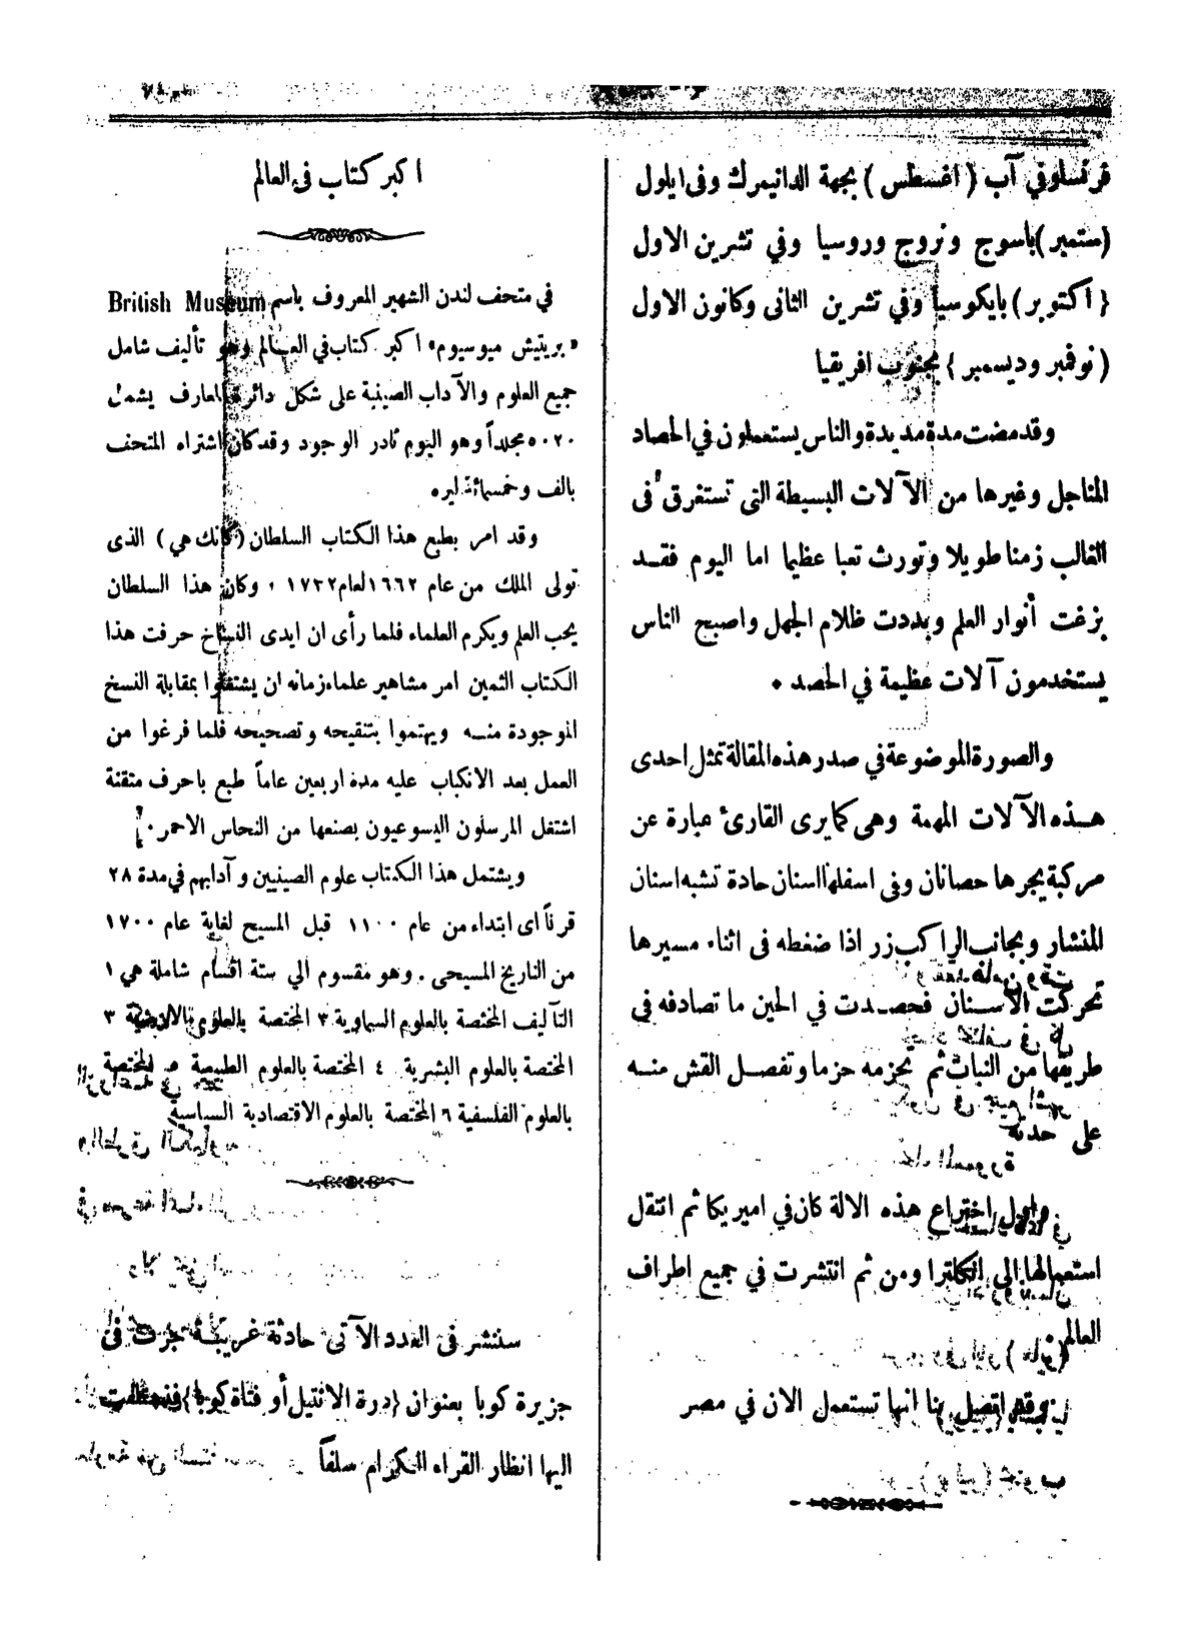 فرنسا وفي آب ( اغسطس ) بجهة الدانيمرك وفى ايلول
(ستمبر) باسوج ونروج وروسيا وفي تشرين الاول
( اكتوبر ) بايكوسيا وفي تشرين الثانى وكانون الاول
( نوفمبر وديسمبر ) بجنوب افريقيا
وقد مضت مدة مديدة والناس يستعملون في الحصاد
المناجل وغيرها من الآلات البسيطة التى تستغرق فى
الغالب زمنا طويلا وتورث تعبا عظيما اما اليوم فقـد
بزغت أنوار العلم وبددت ظلام الجهل واصبح الناس
يستخدمون آلات عظيمة في الحصد ٠
والصورة الموضوعة في صدر هذه المقالة تمثل احدى
هـذه الآلات المهمة وهى كما يرى القارئ عبارة عن
مركبة يجرها حصانان وفى اسفلها اسنان حادة تشبه اسنان
المنشار وبجانب الراكب زر اذا ضغطه فى اثناء مسيرها
تحركت الاسـنان فحصـدت في الحين ما تصادفه في
طريقها من النبات ثم تحزمه حزما وتفصـل القش منـه
على حدته
واول اختراع هذه الالة كان في اميريكا ثم انتقل
استعمالها الى انكلترا ومن ثم انتشرت في جميع اطراف
العالم
وقد اتصل بنا انها تستعمل الان في مصر
اكبر كتاب فى العالم
في متحف لندن الشهير المعروف باسم British Museum
«بريتيش ميوسيوم» اكبر كتاب في العـالم وهو تأليف شامل
جميع العلوم والآداب الصينية على شكل دائرة المعارف يشمل
٥٠٢٠ مجلداً وهو اليوم نادر الوجود وقد كان اشتراه المتحف
بالف وخمسمائة ليره
وقد امر بطبع هذا الكتاب السلطان (كانك هي) الذى
تولى الملك من عام ١٦٦٢ لعام ١٧٢٢ ٠ وكان هذا السلطان
يحب العلم ويكرم العلماء فلما رأى ان ايدى النساخ حرفت هذا
الكتاب الثمين امر مشاهير علماء زمانه ان يشتغلوا بمقابلة النسخ
الموجودة منـه ويهتموا بتنقيحه وتصحيحه فلما فرغوا من
العمل بعد الانكباب عليه مدة اربعين عاماً طبع باحرف متقنة
اشتغل المرسلون اليسوعيون بصنعها من النحاس الاحمر ٠
ويشتمل هذا الكتاب علوم الصينيين وآدابهم في مدة ٢٨
قرناً اى ابتداء من عام ١١٠٠ قبل المسيح لغاية عام ١٧٠٠
من التاريخ المسيحى . وهو مقسوم الي ستة اقسام شاملة هي ١
التآليف المختصة بالعلوم السماوية ٢ المختصة بالعلوم الارضية ٣
المختصة بالعلوم البشرية ٤ المختصة بالعلوم الطبيعية ٥ المختصة
بالعلوم الفلسفية ٦ المختصة بالعلوم الاقتصادية السياسية
سننشر فى العدد الآتى حادثة غريبـة جرت فى
جزيرة كوبا بعنوان (درة الانتيل أو فتاة كوبا)
اليها انظار القراء الكرام سلفاً